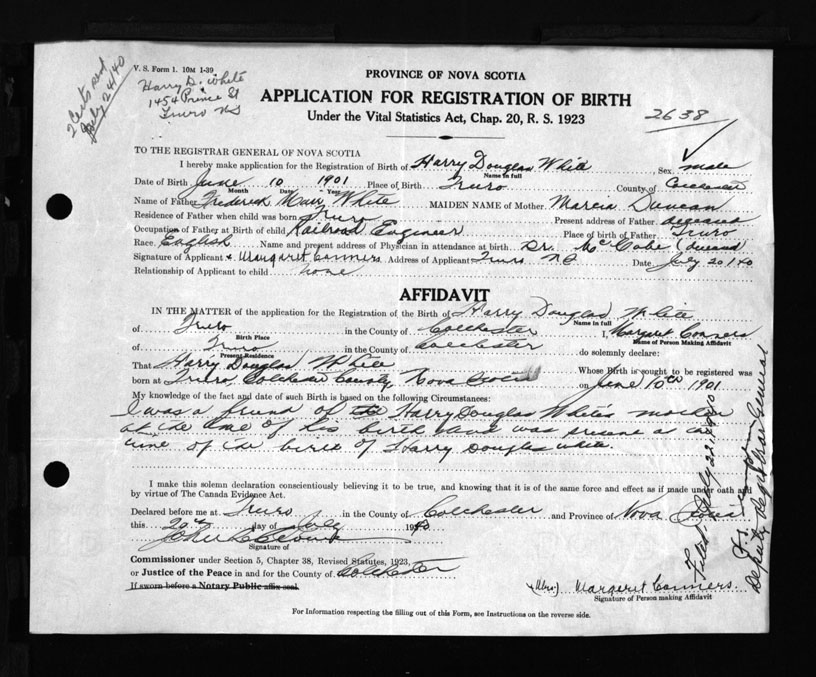 V. S. Form 1. 10M 1-39
2 Certs sent
July 24/40
Harry D. White
145 Prince St
Truro NS
PROVINCE OF NOVA SCOTIA
APPLICATION FOR REGISTRATION OF BIRTH
Under the Vital Statistics Act, Chap. 20, R. S. 1923
2638
TO THE REGISTRAR GENERAL OF NOVA SCOTIA
I hereby make application for the Registration of Birth of Harry Douglas White Sex male
Name in full
Date of Birth June 10 1901 Place of Birth Truro County of Colchester
Month Date Year
Name of Father Frederick Muir White MAIDEN NAME of Mother. Marcia Duncan
Residence of Father when child was born Truro Present address of Father deceased
Occupation of Father at Birth of child Railroad Engineer Place of birth of Father Truro
Race English Name and present address of Physician in attendance at birth Dr. McCabe
Signature of Applicant Margaret Conners Address of Applicant Truro NS Date July 20/40
Relationship of Applicant to child none
AFFIDAVIT
IN THE MATTER of the application for the Registration of the Birth of Harry Douglas White
Name in full
of Truro in the County of Colchester I, Margaret Conners
Birth Place Name of Person Making Affidavit
of Truro in the County of Colchester do solemnly declare:
Present Residence
That Harry Douglas White Whose Birth is sought to be registered was
born at Truro Colchester County Nova Scotia on June 10th 1901
My knowledge of the fact and date of such Birth is based on the following Circumstances:
I was a friend of Harry Douglas White's mother
at the time of his birth and was present at the
time of the birth of Harry Douglas White.
I make this solemn declaration conscientiously believing it to be true, and knowing that it is of the same force and effect as if made under oath and
by virtue of The Canada Evidence Act.
Declared before me at Truro in the County of Colchester and Province of Nova Scotia
this 20th day of July 1940
Signature of
Commissioner under Section 5, Chapter 38, Revised Statutes, 1923,
or Justice of the Peace in and for the County of Colchester
If sworn before a Notary Public affix seal.
(Mrs.) Margaret Conners.
Signature of Person making Affidavit
For Information respecting the filling out of this Form, see Instructions on the reverse side.
Filed July 22, 1940
Deputy Registrar General